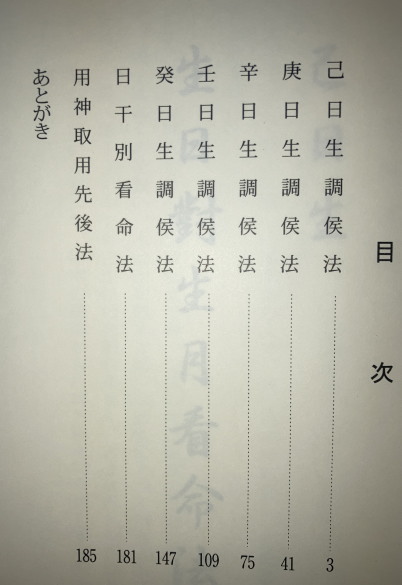 目次
己日生調侯法 3
庚日生調侯法 41
辛日生調侯法 75
壬日生調侯法 109
癸日生調侯法 147
日干別看命法 181
用神取用先後法 185
あとがき